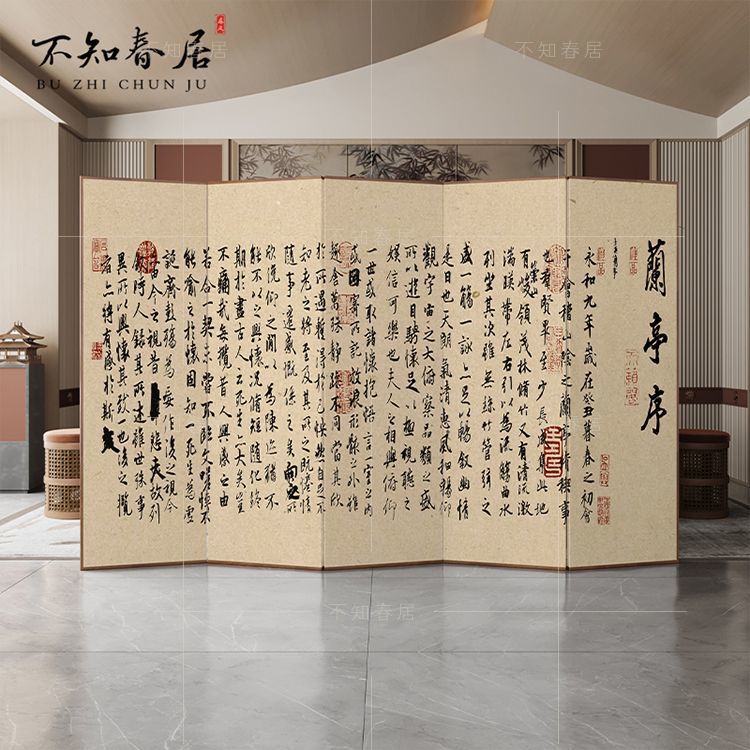 不知春居
BU ZHI CHUN JU
不知春居
不知春居
蘭亭序
永和九年歲在癸丑暮春之初會
于會稽山陰之蘭亭脩稧事
也羣賢畢至少長咸集此地
有崇山峻領茂林脩竹又有清流激
湍暎帶左右引以為流觴曲水
列坐其次雖無絲竹管弦之
盛一觴一詠亦足以暢叙幽情
是日也天朗氣清惠風和暢仰
觀宇宙之大俯察品類之盛
所以遊目騁懷足以極視聽之
娛信可樂也夫人之相與俯仰
一世或取諸懷抱悟言一室之內
或因寄所託放浪形骸之外雖
趣舍萬殊靜躁不同當其欣
於所遇暫得於己快然自足不
知老之將至及其所之既惓情
隨事遷感慨係之矣向之所
欣俛仰之閒以為陳迹猶不
能不以之興懷況脩短隨化終
期於盡古人云死生亦大矣豈
不痛哉每攬昔人興感之由
若合一契未嘗不臨文嗟悼不
能喻之於懷固知一死生為虛
誕齊彭殤為妄作後之視今
亦由今之視昔悲夫故列
叙時人錄其所述雖世殊事
異所以興懷其致一也後之攬
者亦將有感於斯文
不知春居